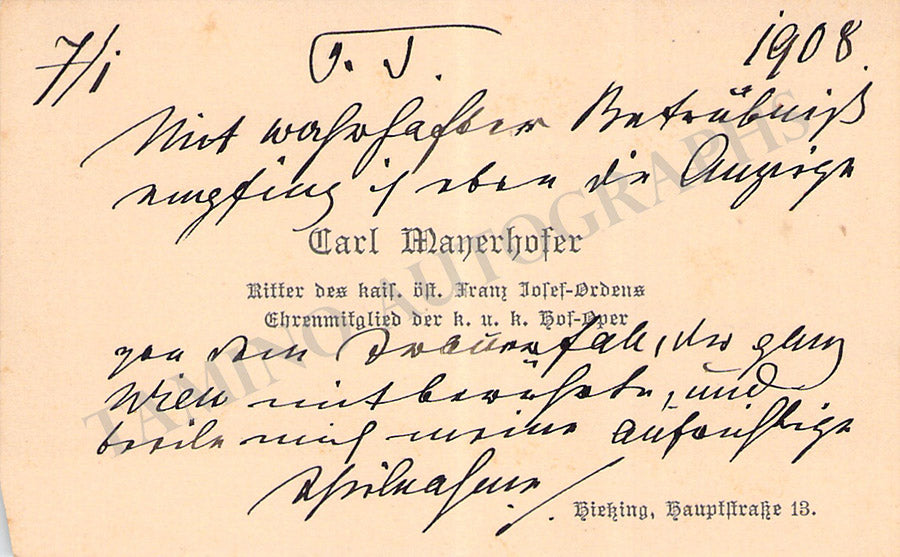 7/I T. J. 1908.
Mit wahrhafter Betrübniß
empfing ich eben die Anzeige
Carl Mayerhofer
Ritter des kais. öst. Franz Josef-Ordens
Ehrenmitglied der k. u. k. Hof-Oper
von dem Trauerfall, der ganz
Wien mitberührte, und
beeile mich meine aufrichtige
Theilnahme
Hietzing, Hauptstraße 13.
TAMINO AUTOGRAPHS